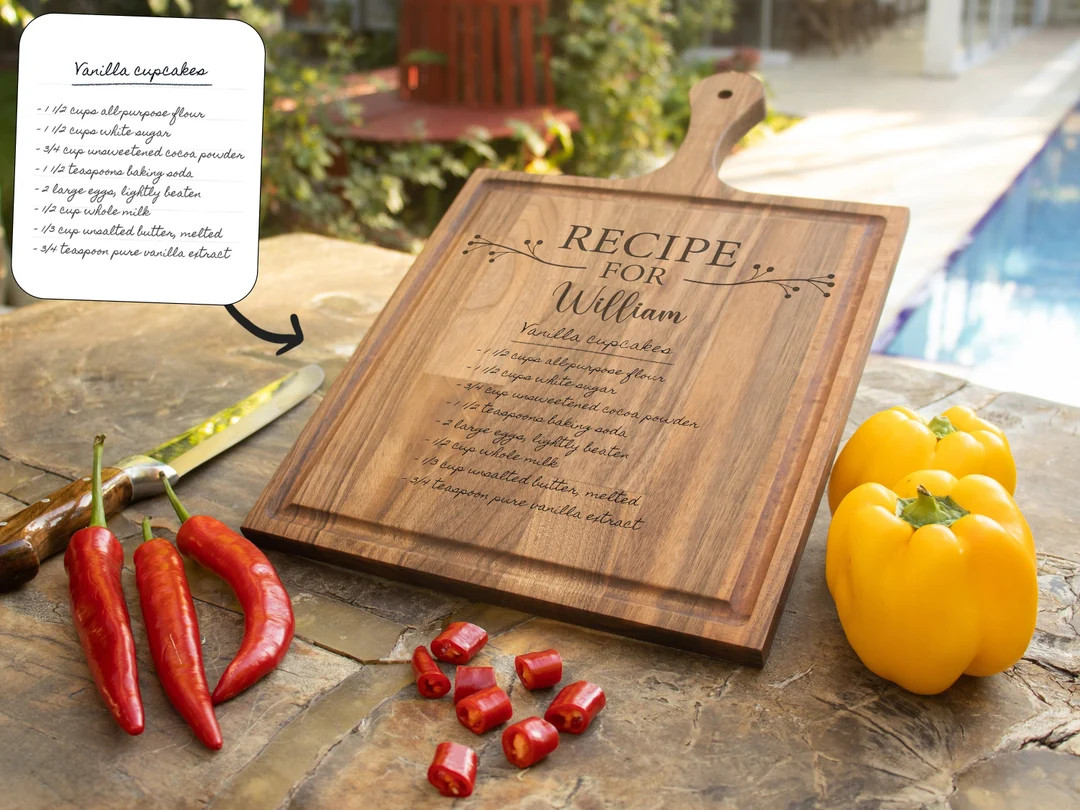 Vanilla cupcakes
- 1 1/2 cups all-purpose flour
- 1 1/2 cups white sugar
- 3/4 cup unsweetened cocoa powder
- 1 1/2 teaspoons baking soda
- 2 large eggs, lightly beaten
- 1/2 cup whole milk
- 1/3 cup unsalted butter, melted
- 3/4 teaspoon pure vanilla extract
RECIPE
FOR
William
Vanilla cupcakes
- 1 1/2 cups all-purpose flour
- 1 1/2 cups white sugar
- 3/4 cup unsweetened cocoa powder
- 1 1/2 teaspoons baking soda
- 2 large eggs, lightly beaten
- 1/2 cup whole milk
- 1/3 cup unsalted butter, melted
- 3/4 teaspoon pure vanilla extract